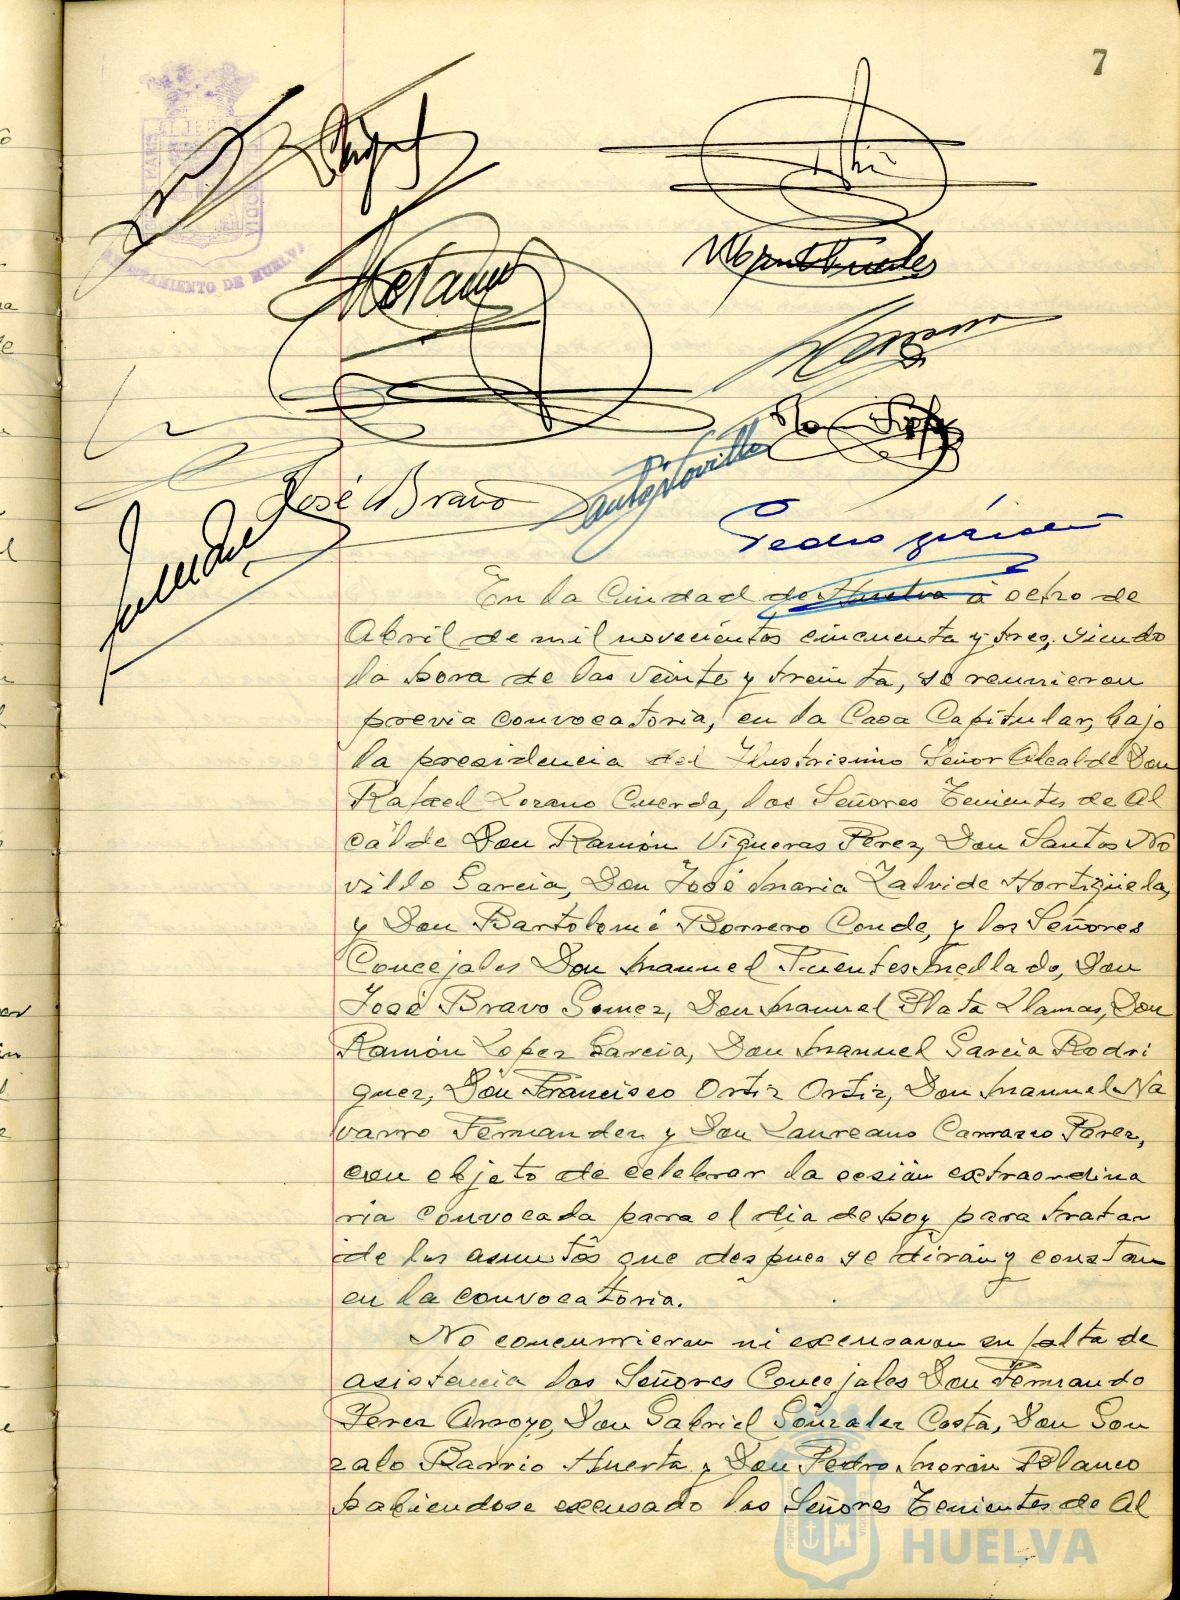 7
AYUNTAMIENTO DE HUELVA
José Bravo
Santos Novillo
Pedro
En la Ciudad de Huelva à ocho de
Abril de mil novecientos cincuenta y tres, siendo
la hora de las veinte y treinta, se reunieron
previa convocatoria, en la Casa Capitular, bajo
la presidencia del Ilustrisimo Señor Alcalde Don
Rafael Lozano Cuerda, los Señores Tenientes de Al
calde Don Ramón Vigueras Perez, Don Santos No
villo Garcia, Don José Maria Zalvide Hortigüela,
y Don Bartolomé Borrero Conde, y los Señores
Concejales Don Manuel Fuentes Mellado, Don
José Bravo Gomez, Don Manuel Plata Llamas, Don
Ramón Lopez Garcia, Don Manuel Garcia Rodri
guez, Don Francisco Ortiz Ortiz, Don Manuel Na
varro Fernandez y Don Laureano Carrasco Perez,
con objeto de celebrar la sesión extraordina
ria convocada para el dia de hoy para tratar
de los asuntos que despues se dirán y constan
en la convocatoria.
No concurrieron ni excusaron su falta de
asistencia los Señores Concejales Don Fernando
Perez Arroyo, Don Gabriel Gonzalez Costa, Don Gon
zalo Barrio Huerta y Don Pedro Morón Blanco
habiendose excusado los Señores Tenientes de Al
HUELVA